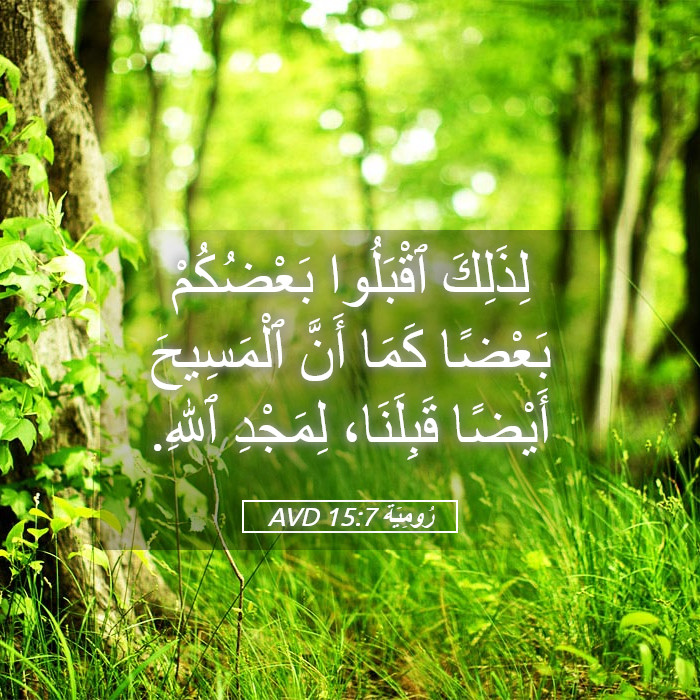 لِذَلِكَ ٱقْبَلُوا بَعْضُكُمْ
بَعْضًا كَمَا أَنَّ ٱلْمَسِيحَ
أَيْضًا قَبِلَنَا، لِمَجْدِ ٱللهِ.
رُومِيَة 15:7 AVD